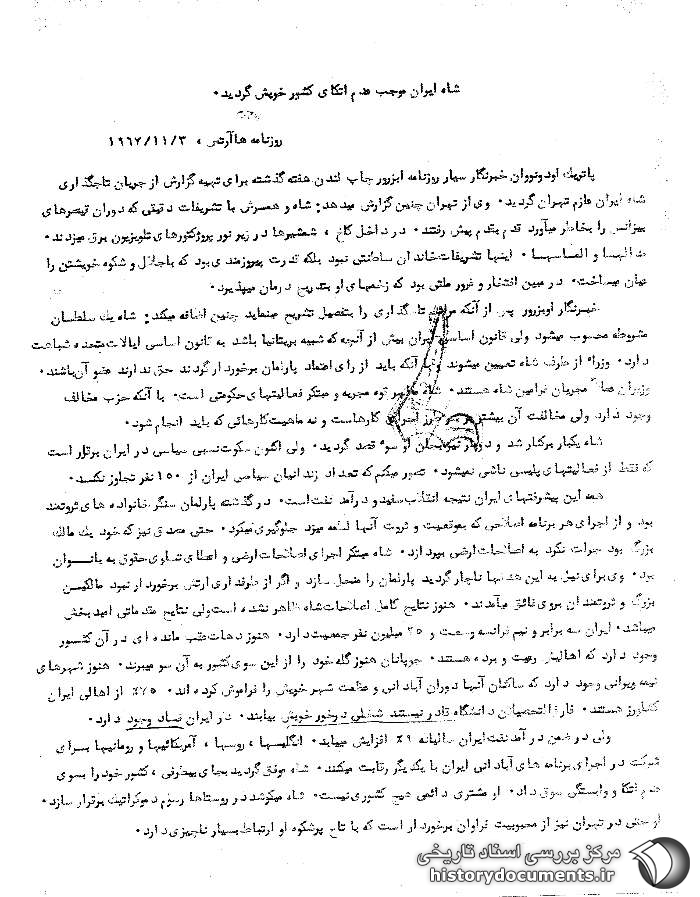 شاه ایران موجب عدم اتکای کشور خویش گردید.
روزنامه هاآرتس ، ۱۹۶۷/۱۱/۳
پاتریک اودونووان خبرنگار سیار روزنامه ابزرور چاپ لندن هفته گذشته برای تهیه گزارش از جریان تاجگذاری
شاه ایران عازم تهران گردید. وی از تهران چنین گزارش میدهد: شاه و همسرش با تشریفات دقیقی که دوران قیصرهای
بیزانس را بخاطر میآورد قدم بقدم پیش رفتند. در داخل کاخ ، شمشیرها در زیر نور پروژکتورهای تلویزیون برق میزدند.
مدالها و الماسها. اینها تشریفات خاندان سلطنتی نبود بلکه قدرت پیروزمندی بود که با جلال و شکوه خویشتن را
عیان میساخت. در عین افتخار و غرور ملتی بود که زخمهای او بتدریج درمان میپذیرد.
خبرنگار اوبزرور پس از آنکه تاجگذاری را بتفصیل تشریح مینماید چنین اضافه میکند: شاه یک سلطان
مشروطه محسوب میشود ولی قانون اساسی ایران بیش از آنچه که شبیه بریتانیا باشد به قانون اساسی ایالات متحده شباهت
دارد. وزراء از طرف شاه تعیین میشوند و با آنکه باید از رای اعتماد پارلمان برخوردار گردند حق ندارند عضو آن باشند.
وزیران مجریان فرامین شاه هستند. شاه قوه مجریه و مبتکر فعالیتهای حکومتی است. با آنکه حزب مخالف
وجود دارد ولی مخالفت آن بیشتر بر سر طرز اجرای کارهاست و نه ماهیت کارهائی که باید انجام شود.
شاه یکبار برکنار شد و دوبار نیز بجان او سوء قصد گردید. ولی اکنون سکوت نسبی سیاسی در ایران برقرار است
که فقط از فعالیتهای پلیس ناشی نمیشود. تصور میکنم که تعداد زندانیان سیاسی ایران از ۱۵۰ نفر تجاوز نکند.
همه این پیشرفتهای ایران نتیجه انقلاب سفید و درآمد نفت است. در گذشته پارلمان سنگر خانواده های ثروتمند
بود و از اجرای هر برنامه اصلاحی که بموقعیت و ثروت آنها لطمه میزد جلوگیری میکرد. حتی مصدق نیز که خود یک مالک
بزرگ بود جرات نکرد به اصلاحات ارضی بپردازد. شاه مبتکر اجرای اصلاحات ارضی و اعطای تساوی حقوق به بانوان
بود. وی برای نیل به این هدفها ناچار گردید پارلمان را منحل سازد و اگر از طرفداری ارتش برخوردار نبود مالکین
بزرگ و ثروتمندان بر وی فائق میآمدند. هنوز نتایج کامل اصلاحات شاه ظاهر نشده است ولی نتایج مقدماتی امید بخش
میباشد. ایران سه برابر و نیم فرانسه وسعت و ۲۵ میلیون نفر جمعیت دارد. هنوز دهات عقب مانده ای در آن کشور
وجود دارد که اهالیش رعیت و برده هستند. چوپانان هنوز گله خود را از این سوی کشور به آن سو میبرند. هنوز شهرهای
نیمه ویرانی وجود دارد که ساکنان آنها دوران آبادانی و عظمت شهر خویش را فراموش کرده اند. ۷۵٪ از اهالی ایران
کشاورز هستند. فارغ التحصیلان دانشگاه قادر نیستند شغلی درخور خویش بیابند. در ایران فساد وجود دارد.
ولی در ضمن درآمد نفت ایران سالیانه ۹٪ افزایش مییابد. انگلیسها ، روسها ، آمریکائیها و رومانیها برای
شرکت در اجرای برنامه های آبادانی ایران با یکدیگر رقابت میکنند. شاه موفق گردید بجای بیطرفی ، کشور خود را بسوی
عدم اتکا و وابستگی سوق داد. او مشتری دائمی هیچ کشوری نیست. شاه میکوشد در روستاها رسوم دموکراتیک برقرار سازد.
او حتی در تهران نیز از محبوبیت فراوان برخوردار است که با تاج پرشکوه او ارتباط بسیار ناچیزی دارد.
مرکز بررسی اسناد تاریخی
historydocuments.ir